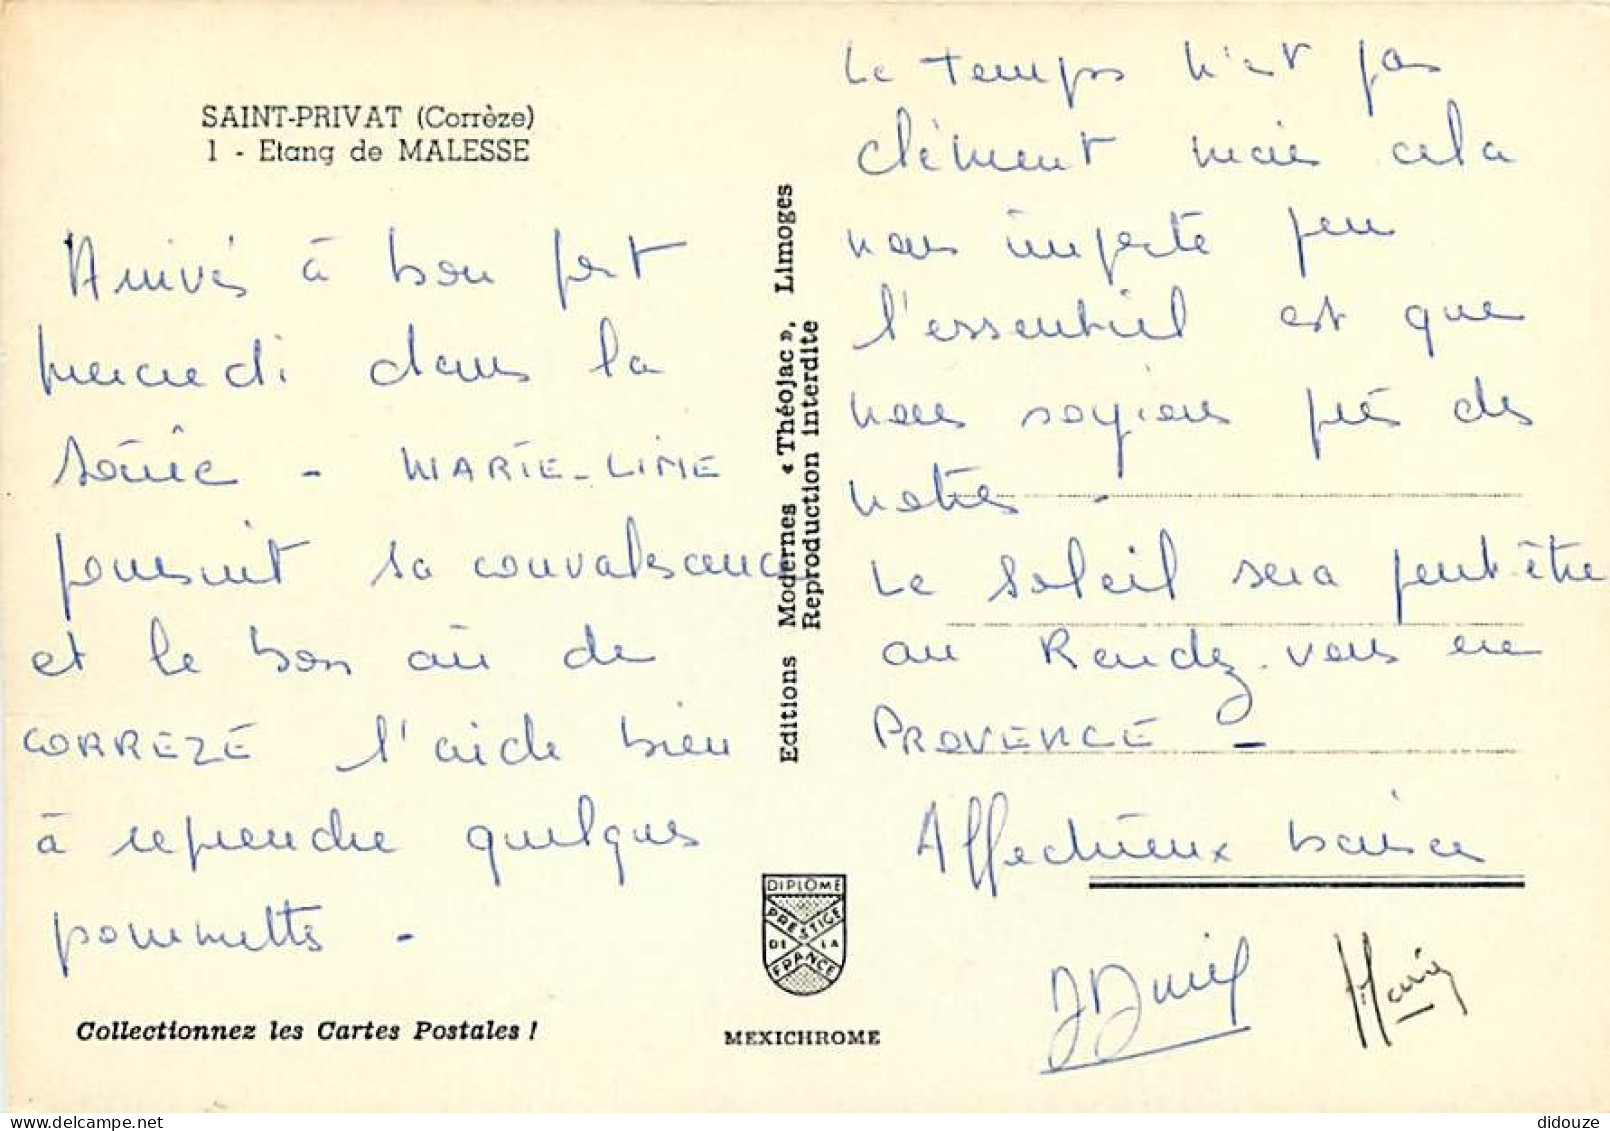 SAINT-PRIVAT (Corrèze)
1 - Etang de MALESSE
Arrivés à bon port
mercredi dans la
soirée - MARIE-LINE
poursuit sa convalescence
et le bon air de
CORREZE l'aide bien
à reprendre quelques
pommettes -
Collectionnez les Cartes Postales !
Editions Modernes « Théojac », Limoges
Reproduction interdite
DIPLOME
PRESTIGE
DE LA
FRANCE
MEXICHROME
Le temps n'est pas
clément mais cela
nous importe peu
l'essentiel est que
nous soyions près des
notres -
Le soleil sera peut-être
au Rendez-vous en
PROVENCE -
Affectueux baisers
didouze